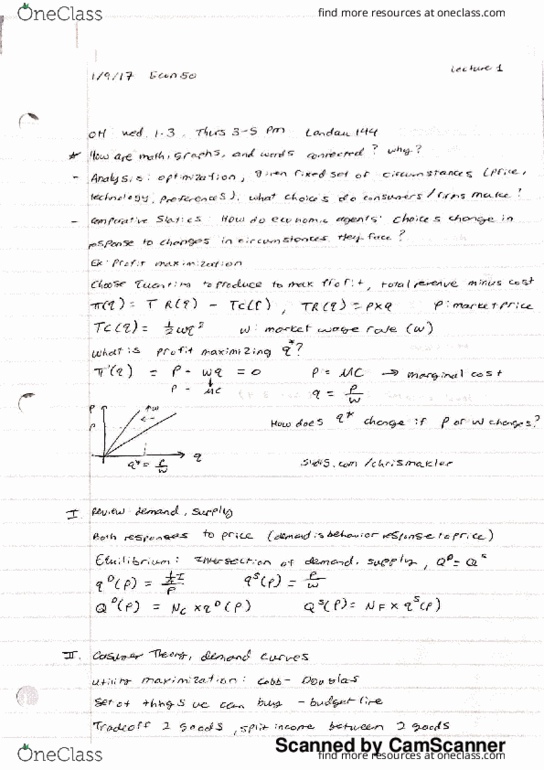 OneClass
find more resources at oneclass.com
1/9/17 Econ 50
Lecture 1
OH: wed. 1-3, Thurs 3-5 pm Landau 144
* How are math, graphs, and words connected? why?
- Analysis: optimization, given fixed set of circumstances (price,
technology, preferences), what choices do consumers/firms make?
- Comparative Statics: How do economic agents' choices change in
response to changes in circumstances they face?
Ex: Profit maximization
Choose quantity to produce to max profit, total revenue minus cost
π(q) = TR(q) - TC(q), TR(q) = p×q p: market price
TC(q) = ½wq² w: market wage rate (w)
What is profit maximizing q*?
π'(q) = p - wq = 0 p = MC → marginal cost
p - MC q = p/w
How does q* change if p or w changes?
p ↑w
q* = p/w q
.com/chrismakler
I Review: demand, supply
Both responses to price (demand is behavior response to price)
Equilibrium: Intersection of demand, supply, Qᴰ = Qˢ
qᴰ(p) = ½I/p qˢ(p) = p/w
Qᴰ(p) = Nc × qᴰ(p) Qˢ(p) = NF × qˢ(p)
II. Consumer Theory, demand curves
Utility maximization: Cobb-Douglas
Set of things we can buy - budget line
Tradeoff 2 goods, split income between 2 goods
Scanned by CamScanner
OneClass
find more resources at oneclass.com